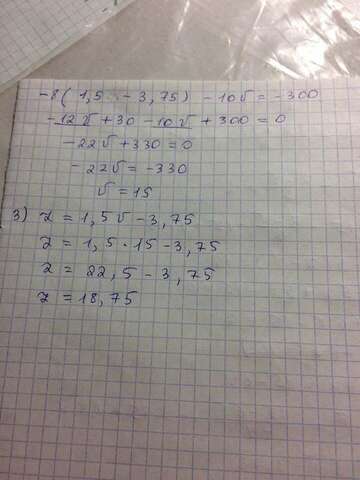 -8(1,5 - 3,75) - 10v = -300
-12v + 30 - 10v + 300 = 0
-22v + 330 = 0
-22v = -330
v = 15
3) z = 1,5v - 3,75
z = 1,5 · 15 - 3,75
z = 22,5 - 3,75
z = 18,75